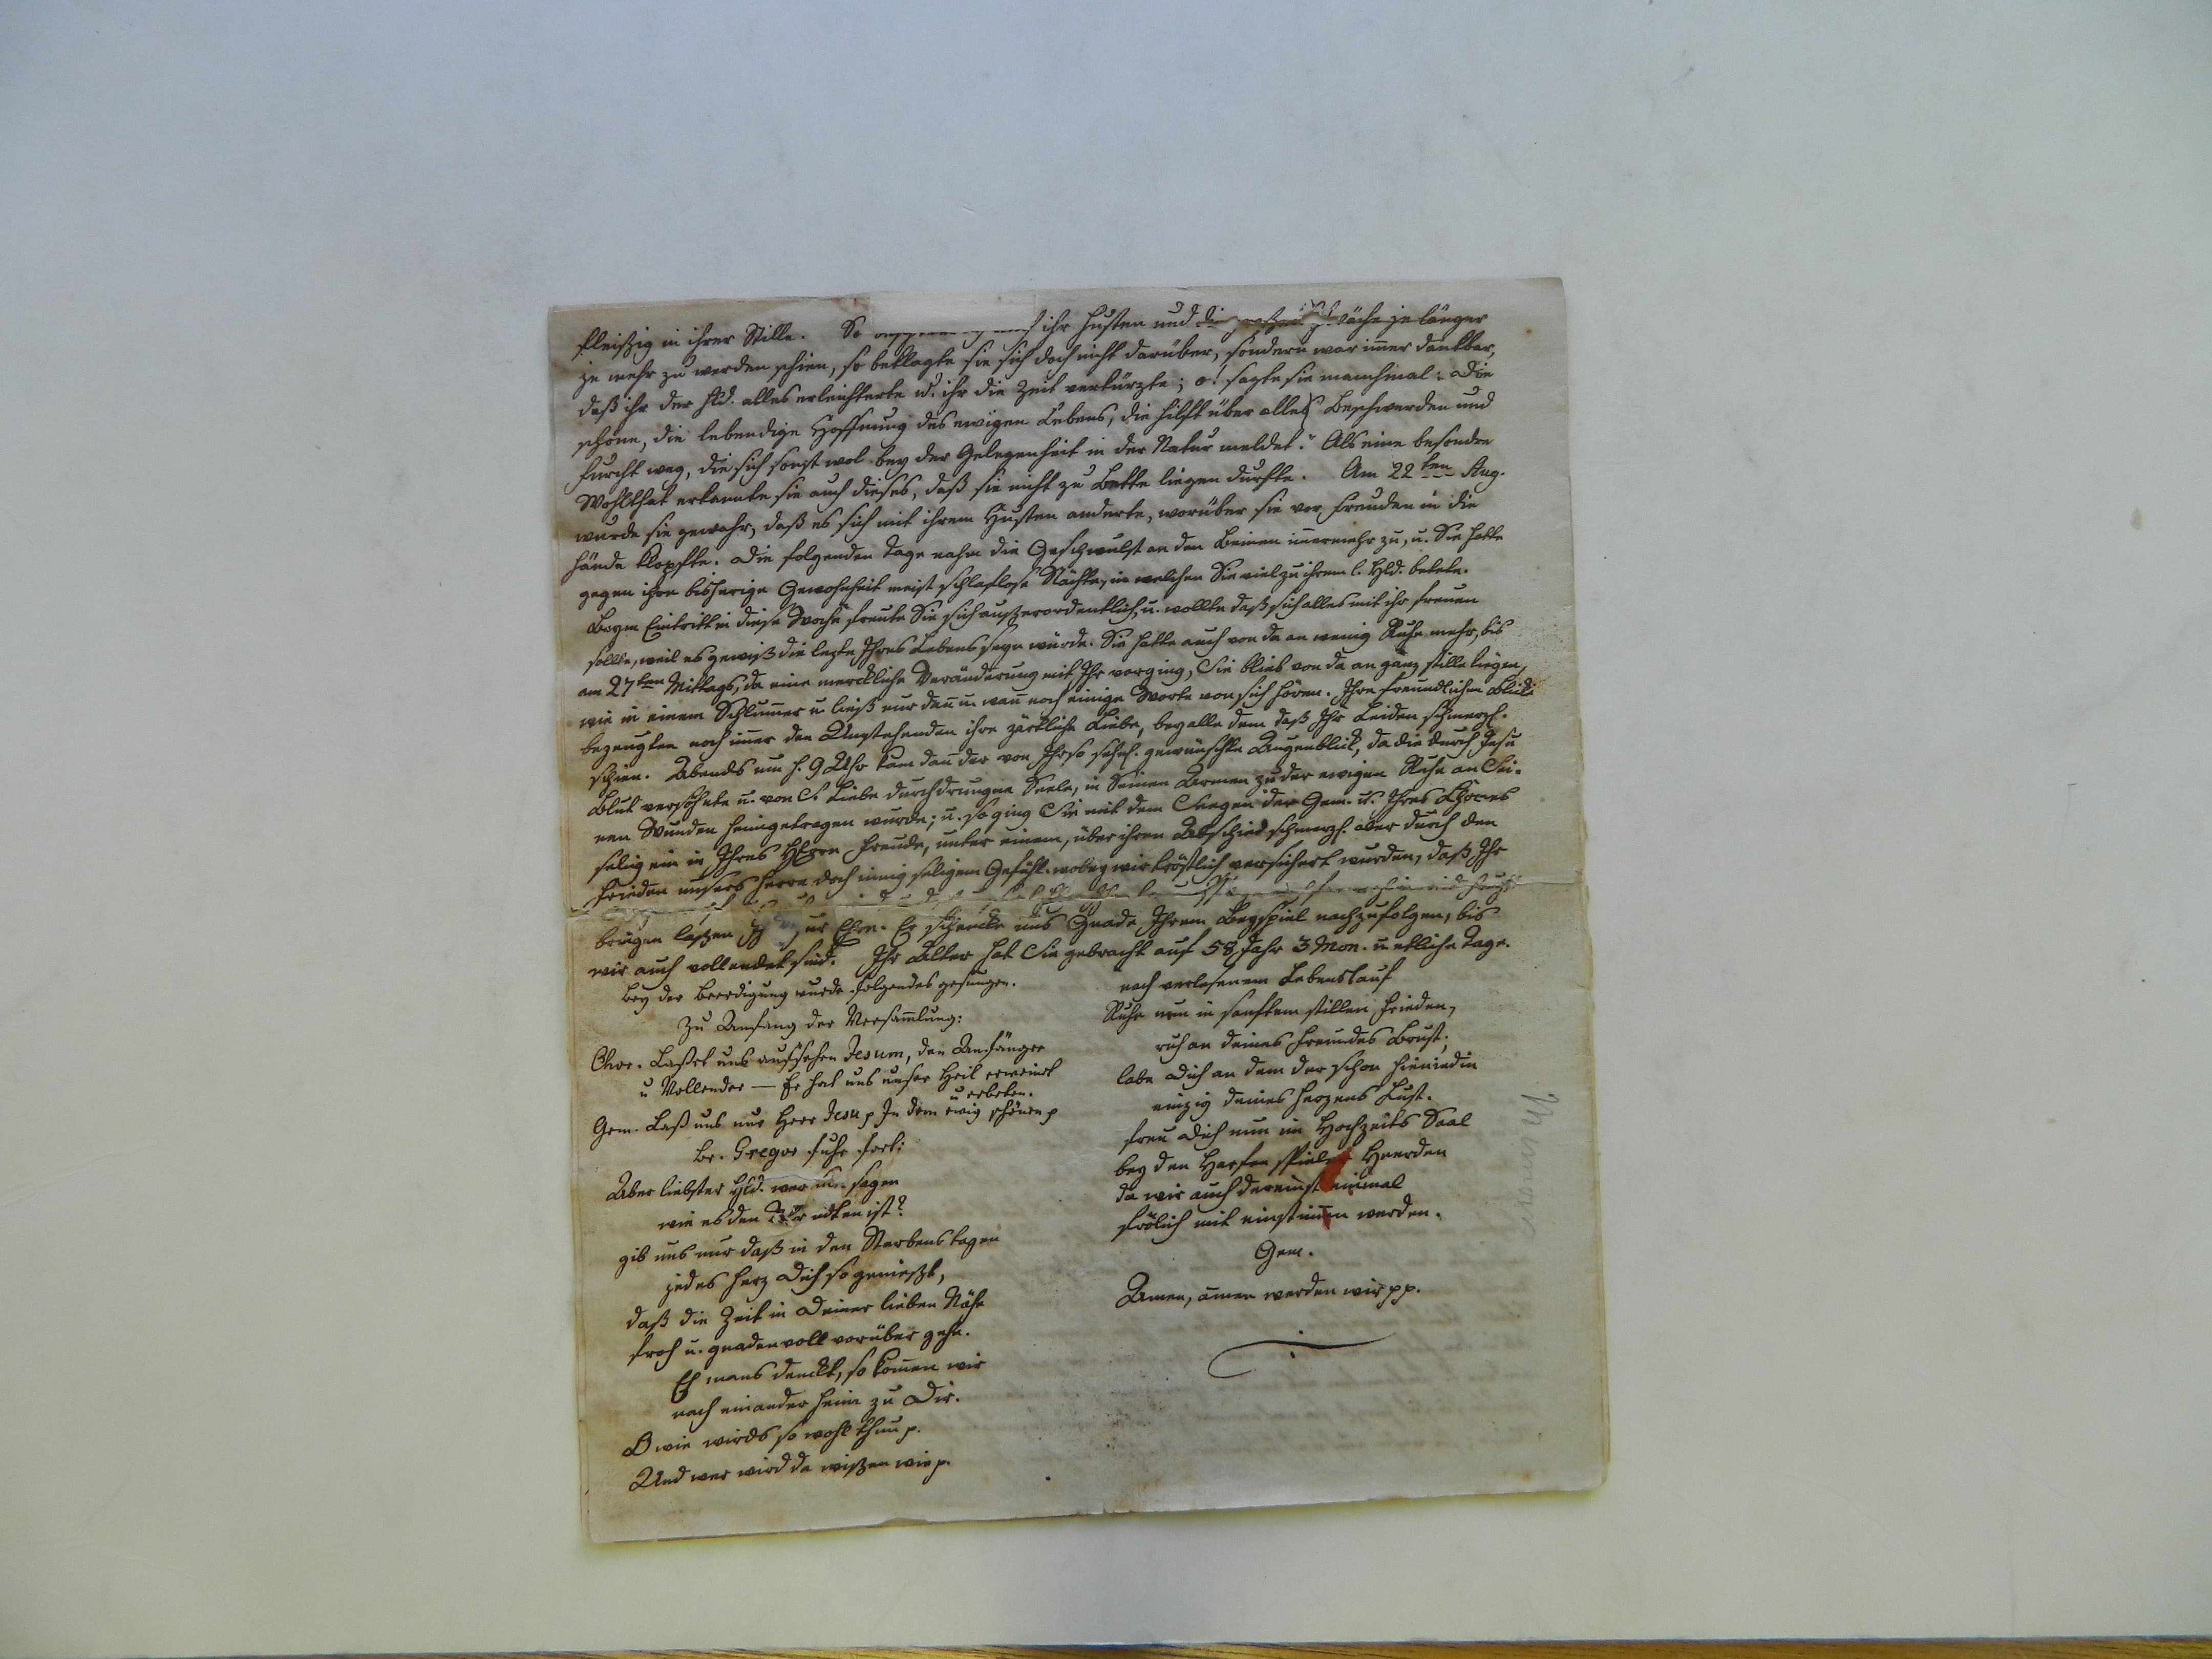 fleißig in ihrer Stille. So ihr Husten und die je länger
je mehr zu werden schien, so beklagte sie sich doch nicht darüber, sondern war im̅er dankbar,
daß ihr der Hld. alles erleichterte u. ihr die Zeit verkürzte; o! sagte sie manchmal: die
schöne, die lebendige Hoffnung des ewigen Lebens, die hilft über alles Beschwerden und
Furcht weg, die sich sonst wol bey der Gelegenheit in der Natur meldet." Als eine besondre
Wohlthat erkannte sie auch dieses, daß sie nicht zu Bette liegen durfte. Am 22ten Aug.
wurde sie gewahr, daß es sich mit ihrem Husten anderte, worüber sie vor Freuden in die
Hände klopfte. Die folgenden Tage nahm die Geschwulst an den Beinen im̅ermehr zu, u. Sie hatte
gegen ihre bisherige Gewohnheit meist schlaflose Nächte, in welchen Sie viel zu ihrem l. Hld. betete.
Beym Eintritt in diese Woche freute Sie sich außerordentlich, u. wollte daß sich alles mit ihr freuen
sollte, weil es gewiß die lezte Ihres Lebens seyn würde. Sie hatte auch von da an wenig Ruhe mehr, bis
am 27ten Mittags, da eine merckliche Veränderung mit Ihr vorging, Sie blieb von da an ganz stille liegen,
wie in einem Schlum̅er u. ließ nur dan̅ u. wan̅ noch einige Worte von sich hören. Ihre freundlichen Blicke
bezeugten noch im̅er den Umstehenden ihre zärtliche Liebe, bey alle dem daß Ihr Leiden schmerzl.
schien. Abends um h. 9 Uhr kam dan̅ der von Ihr so sehnl. gewünschte Augenblick, da die durch Jesu
Blut versöhnte u. von S. Liebe durchdrungne Seele, in Seinen Armen zu der ewigen Ruhe an Sei-
nen Wunden heimgetragen wurde; u. so ging Sie mit dem Seegen der Gem. u. Ihres Chores
selig ein in Ihres HErrn Freude, unter einem, über ihren Abschied schmerzl. aber durch den
Frieden unsers Herrn doch innig seligem Gefühl. wobey wir tröstlich versichert wurden, daß Ihr
bringen laßen zur Ehre. Er schencke uns Gnade Ihrem Beyspiel nachzufolgen, bis
wir auch vollendet sind. Ihr Alter hat Sie gebracht auf 58 Jahr 3 Mon. u. etliche Tage.
Bey der Beerdigung wurde folgendes gesungen.
Zu Anfang der Versam̅lung:
Chor. Laßet uns aufsehen Jesum, den Anfänger
u Vollender — Er hat uns unser Heil erweint
u erbeten.
Gem. Laß uns nur Herr Jesu p In dem ewig schönen p
Br. Gregor fuhr fort:
Aber liebster Hld. wer kan sagen
wie es den ist?
gib uns nur daß in den Sterbenstagen
jedes Herz Dich so genießt,
daß die Zeit in Deiner lieben Nähe
froh u. gnadenvoll vorüber gehe.
Eh mans denckt, so kom̅en wir
nach einander heim zu Dir.
O wie wirds so wohl thun p.
Und wer wird da wißen wie p.
nach verlesenem Lebenslauf
Ruhe nun in sanftem stillen Frieden,
ruh an deines Freundes Brust;
labe Dich an dem der schon hienieden
einzig deines Herzens Lust.
freu Dich nun im Hochzeits Saal
bey den Harfen spieler Heerden
da wir auch dereinst einmal
frölich mit einstim̅en werden.
Gem.
Amen, amen werden wir pp.